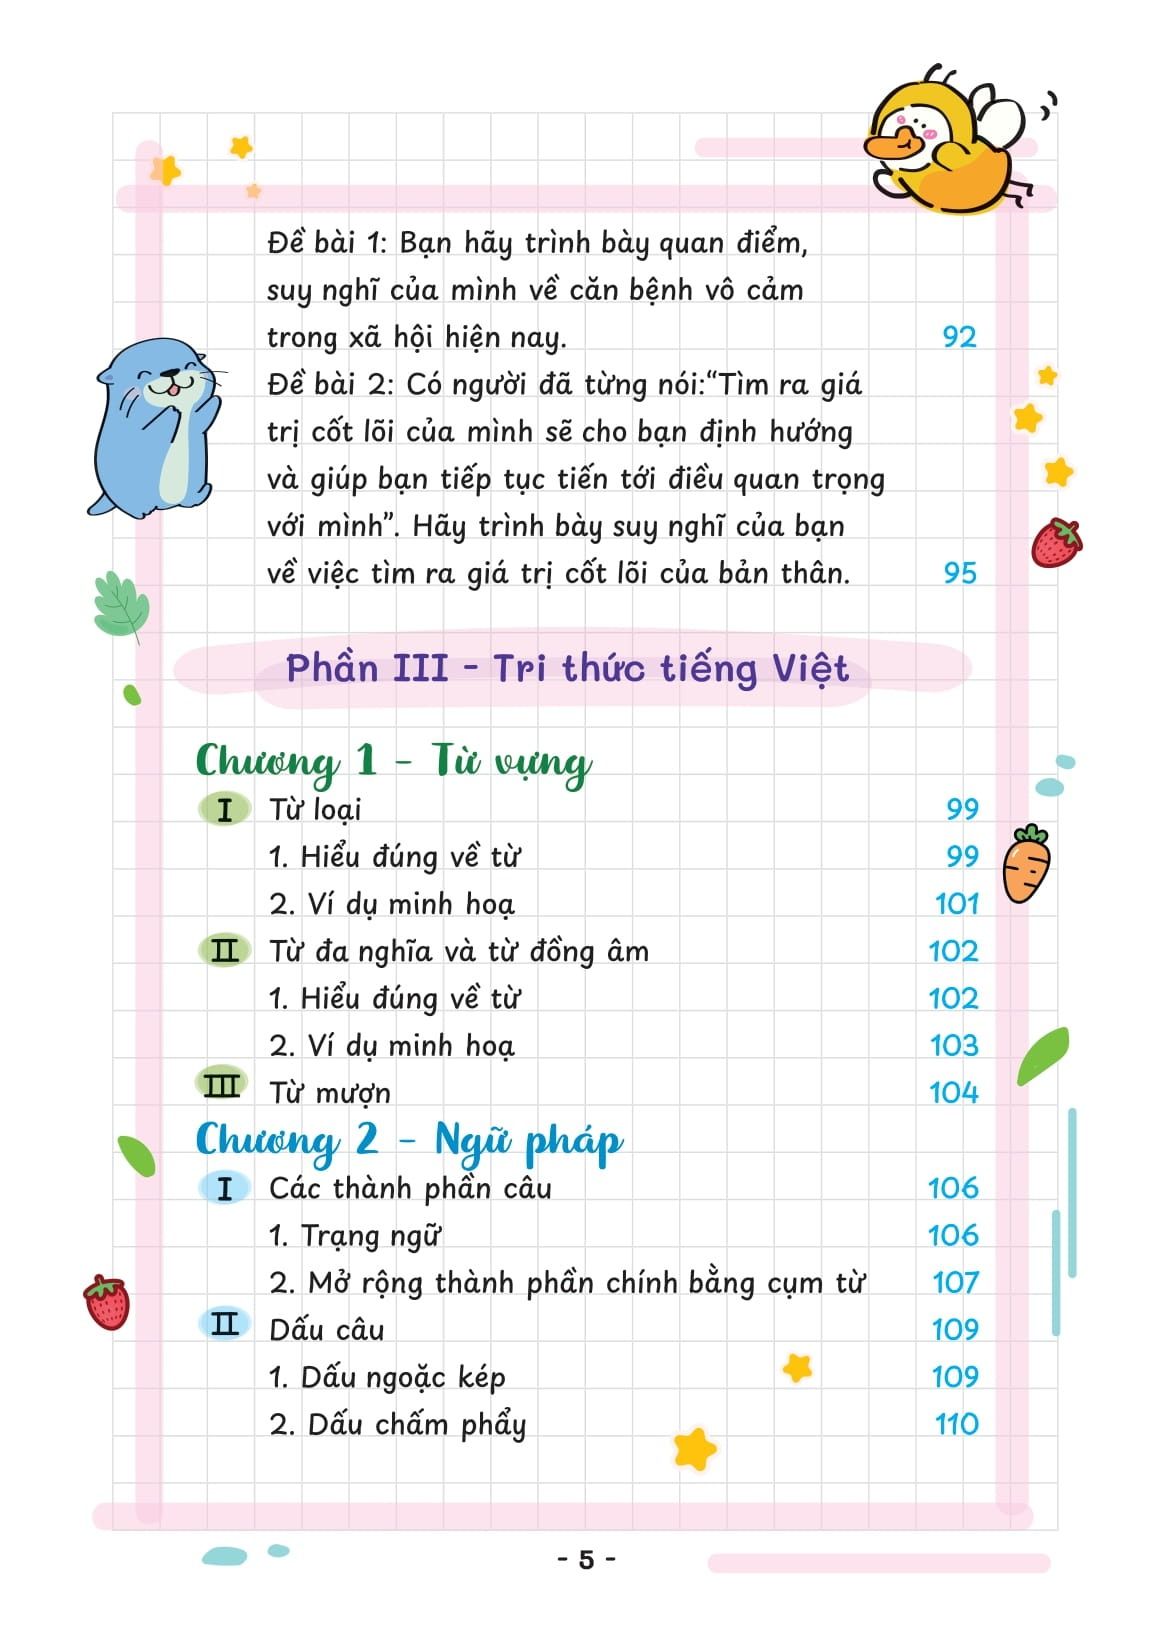 Đề bài 1: Bạn hãy trình bày quan điểm,
suy nghĩ của mình về căn bệnh vô cảm
trong xã hội hiện nay. 92
Đề bài 2: Có người đã từng nói:“Tìm ra giá
trị cốt lõi của mình sẽ cho bạn định hướng
và giúp bạn tiếp tục tiến tới điều quan trọng
với mình”. Hãy trình bày suy nghĩ của bạn
về việc tìm ra giá trị cốt lõi của bản thân. 95
Phần III - Tri thức tiếng Việt
Chương 1 - Từ vựng
I Từ loại 99
1. Hiểu đúng về từ 99
2. Ví dụ minh hoạ 101
II Từ đa nghĩa và từ đồng âm 102
1. Hiểu đúng về từ 102
2. Ví dụ minh hoạ 103
III Từ mượn 104
Chương 2 - Ngữ pháp
I Các thành phần câu 106
1. Trạng ngữ 106
2. Mở rộng thành phần chính bằng cụm từ 107
II Dấu câu 109
1. Dấu ngoặc kép 109
2. Dấu chấm phẩy 110
- 5 -